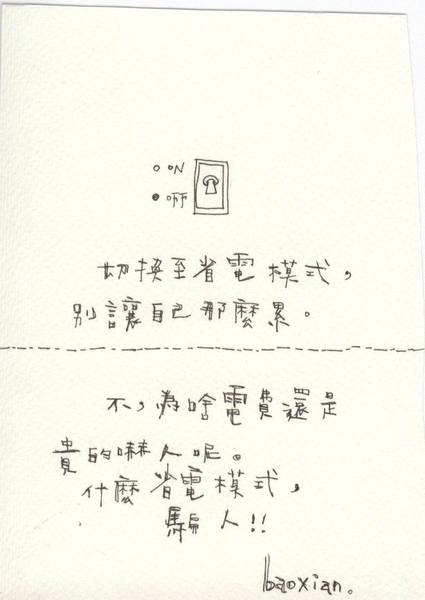 ON
OFF
切換至省電模式，
別讓自己那麼累。
不，為啥電費還是
貴的嚇人呢。
什麼省電模式，
騙人!!
baoxian。